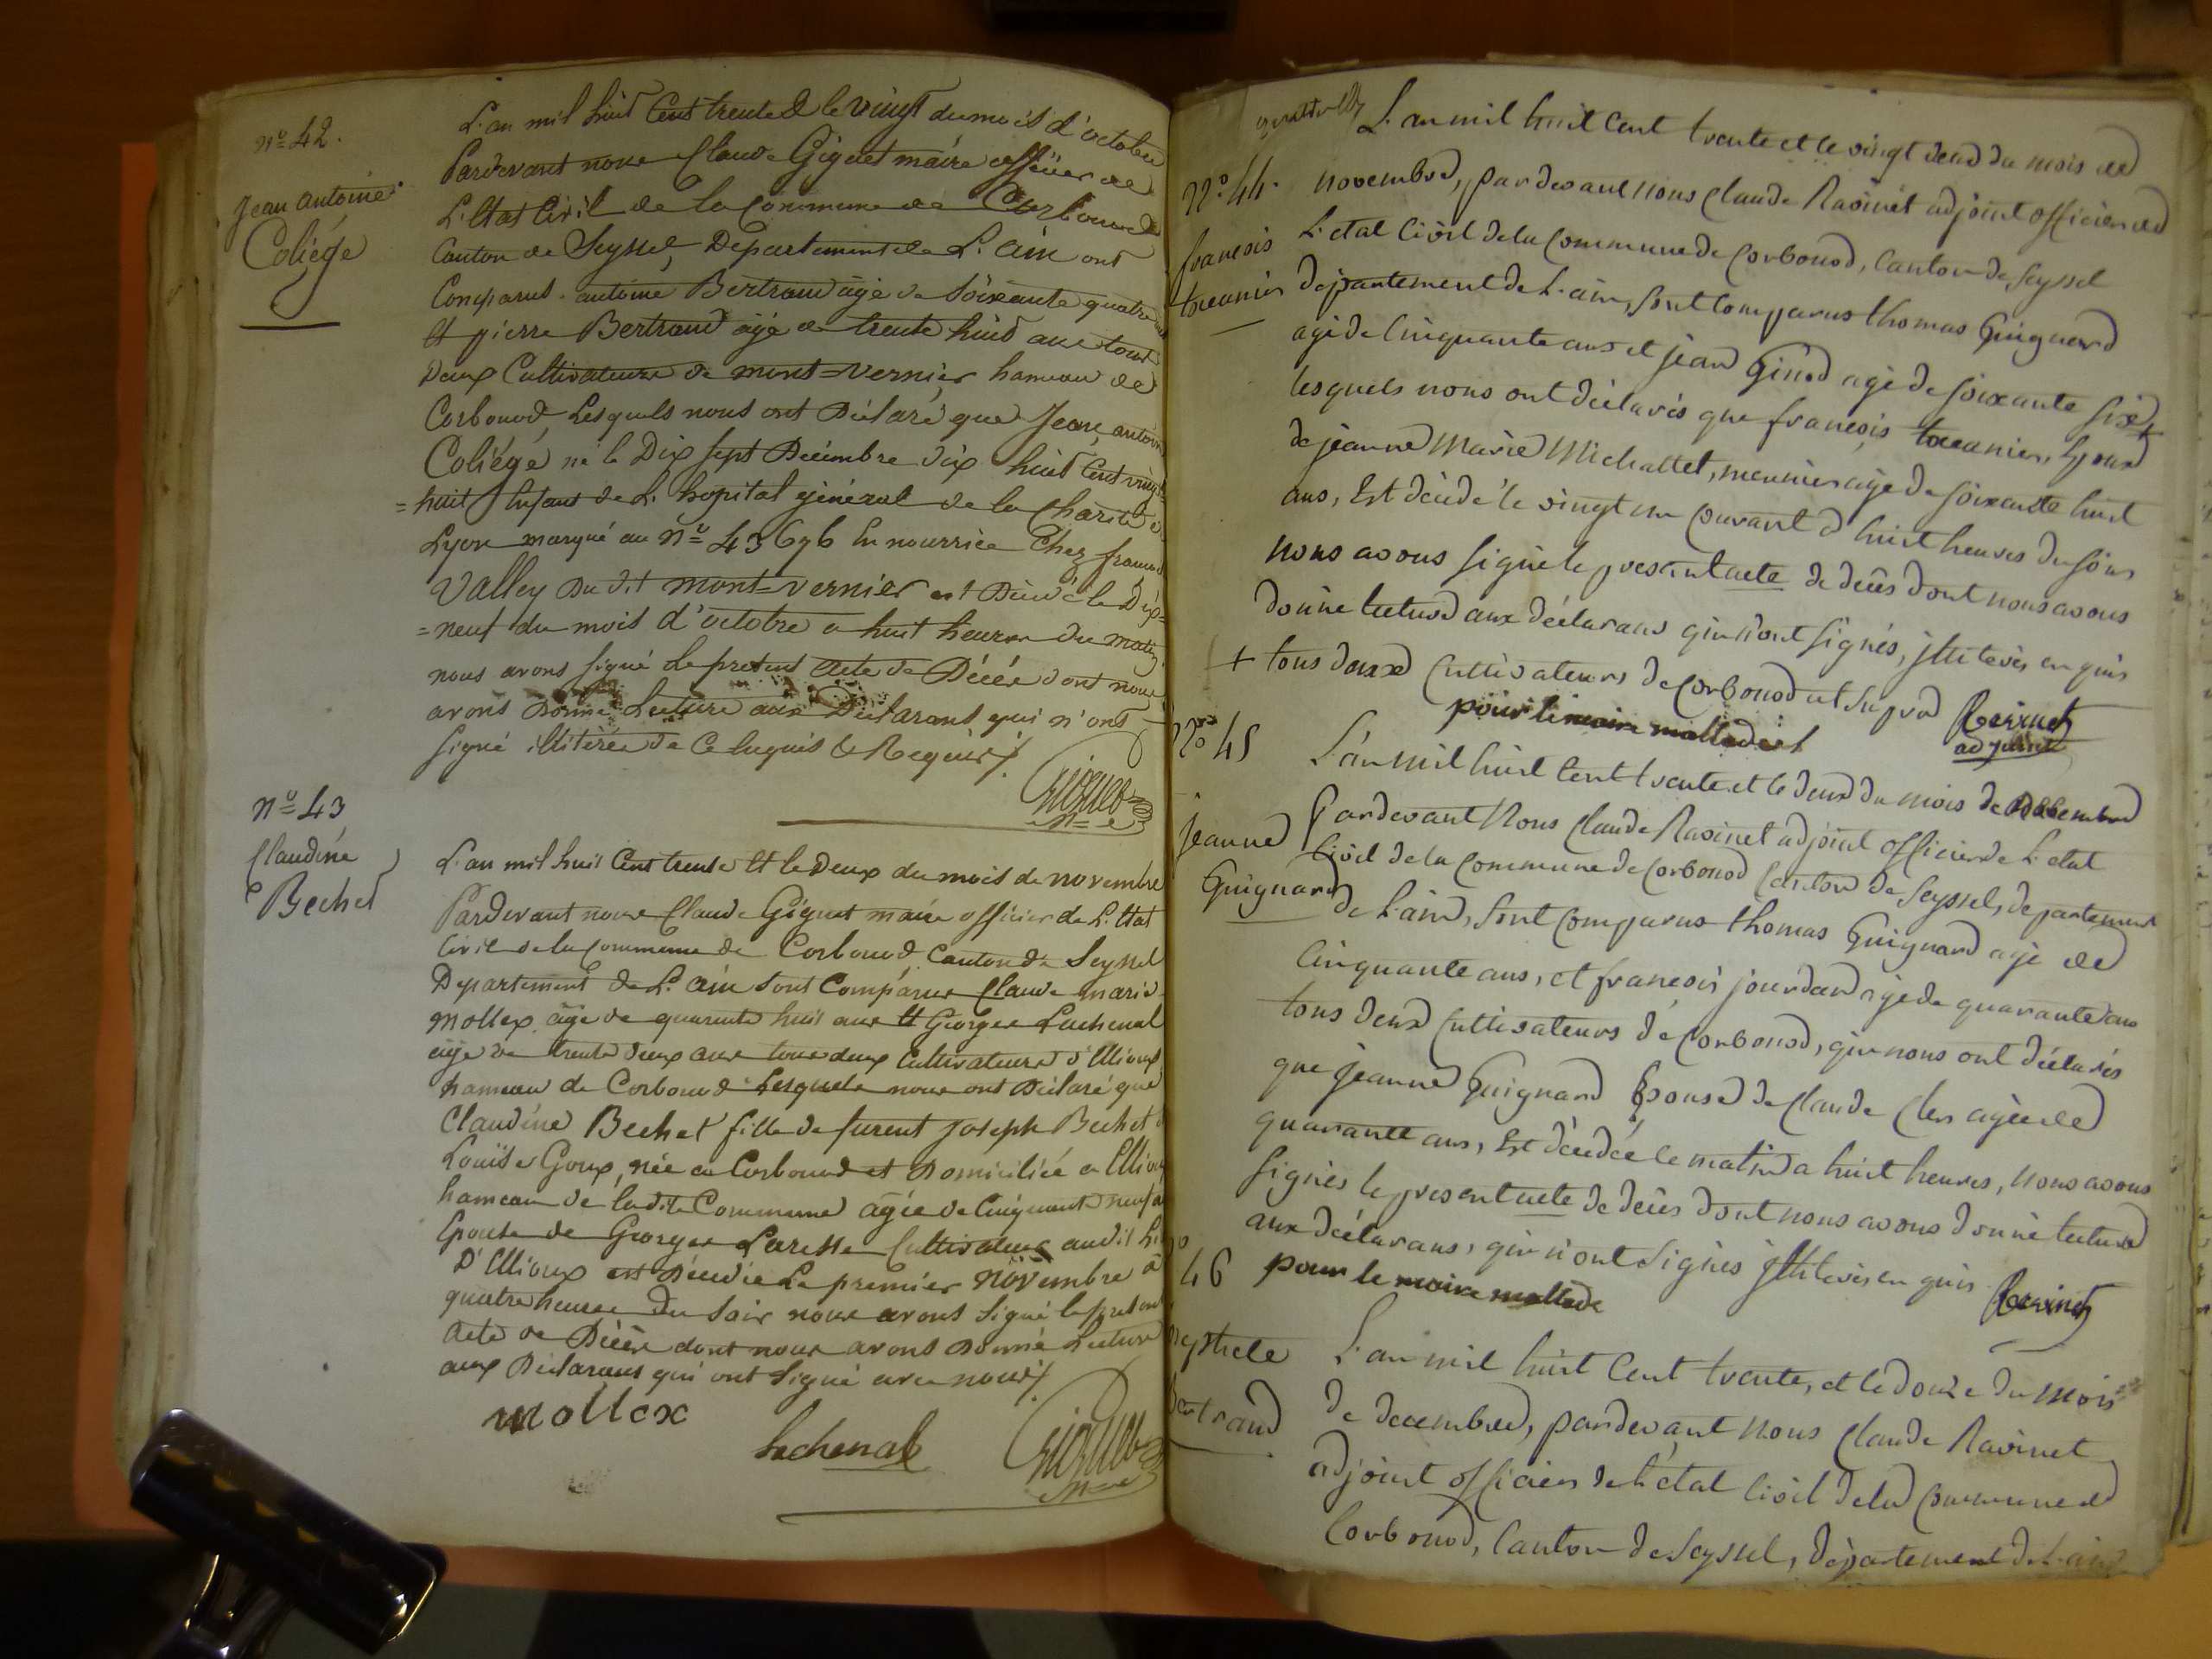 n° 42.
Jean antoine
Coliége
L'an mil huit Cent trente & le vingt du mois d'octobre
Pardevant nous Claude Giguet maire officier de
L'Etat Civil de la Commune de Corbonod
Canton de Seyssel, Departement de L'ain ont
Comparus antoine Bertrand âgé de Soixante quatre
et pierre Bertrand âgé de trente huit ans tout
Deux Cultivateurs de mont=vernier hameau de
Corbonod, Lesquels nous ont Déclaré que Jean antoine
Coliégé né le Dix sept Décembre dix huit Cent vingt
=huit Enfant de L'hopital général de la Charité de
Lyon marqué au n° 43696 En nourrice Chez
Valley Du dit mont=vernier est Décédé le Dix=
=neuf du mois d'octobre a huit heures du matin
nous avons signé Le present acte de Décés dont nous
avons Donné Lecture aux Déclarants qui n'ont
signé illitérés de Ce Enquis & Requis
Giguet
n° 43
Claudine
Bechet
L'an mil huit Cent trente Et le Deux du mois de novembre
Pardevant nous Claude Giguet maire officier de L'Etat
Civil de la Commune de Corbonod Canton de Seyssel
Departement de L'ain Sont Comparus Claude marie
mollex âgé de quarente huit ans Et George Lachenal
âgé de trente deux ans tous deux Cultivateurs d'Ellioux
hameau de Corbonod Lesquels nous ont Déclaré que
Claudine Bechet fille de furent joseph Bechet &
Louise Goux, née a Corbonod et Domiciliée a Ellioux
hameau de la dite Commune âgée de Cinquante neuf
Epouse de George Cultivateur audit
D'Ellioux est Décédée Le premier novembre à
quatre heures Du Soir nous avons Signé le present
acte de Décés dont nous avons Donné Lecture
aux Déclarants qui ont Signé avec nous
mollex
Lachenal
Giguet
L'an mil huit Cent trente et le vingt deux du mois de
N° 44.
francois
novembre, pardevant nous Claude Ravinet adjoint officier de
L'etat Civil de la Commune de Corbonod, Canton de Seyssel
departement de L'ain, sont Comparus thomas Guignard
agé de Cinquante ans et jean Ginod agé de soixante six +
lesquels nous ont déclarés que francois Epoux
de jeanne Marie Michallet, meunier agé de soixante huit
ans, Est décédé le vingt un Courant a huit heures du soir
nous avons signé le present acte de décès dont nous avons
donné lecture aux déclarans qui n'ont signés, illiterés enquis
+ tous deux Cultivateurs de Corbonod Ravinet
pour le maire mallade adjoint
N° 45
jeanne
Guignard
L'an mil huit Cent trente et le deux du mois de Décembre
Pardevant Nous Claude Ravinet adjoint officier de L'etat
Civil de la Commune de Corbonod Canton de Seyssel, departement
de L'ain, sont Comparus thomas Guignard agé de
Cinquante ans, et francois jourdan agé de quarante ans
tous deux Cultivateurs de Corbonod, qui nous ont déclarés
que jeanne Guignard Epouse de Claude agée de
quarante ans, Est décédée le matin a huit heures, Nous avons
signés le present acte de décès dont nous avons donné lecture
aux déclarans, qui n'ont signés illiterés enquis Ravinet
pour le maire mallade
46
L'an mil huit Cent trente, et le douze du mois
de decembre, pardevant Nous Claude Ravinet
adjoint officier de L'état Civil de la Commune de
Corbonod, Canton de Seyssel, département de L'ain